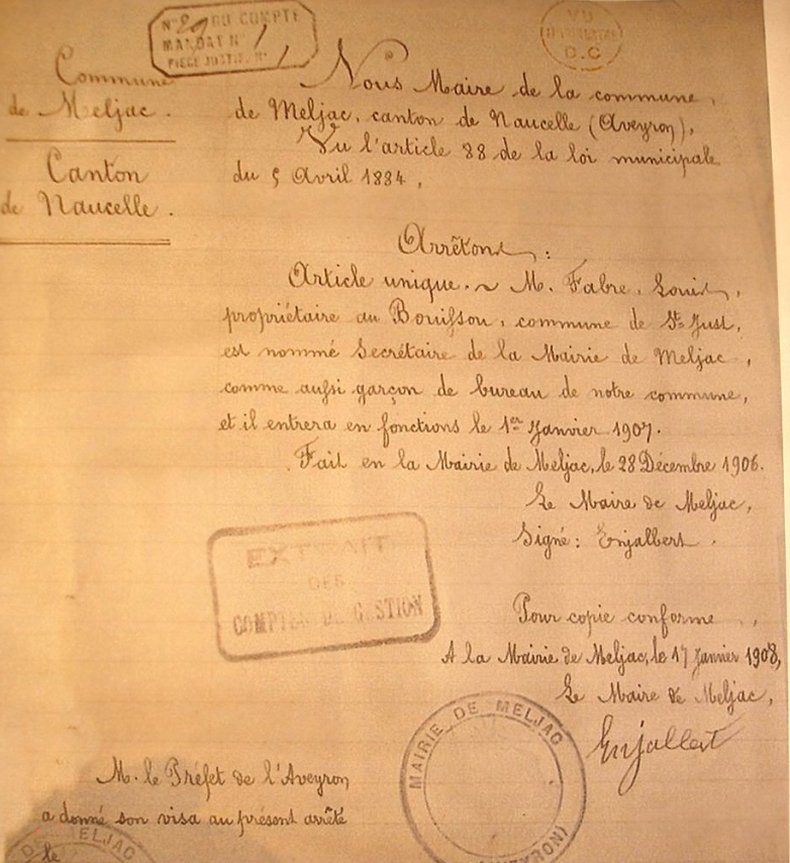 N° 29 DU COMPTE
MANDAT N° 1
PIÈCE JUSTIF. N° 1
VU
D.C
Commune
de Meljac.
Canton
de Naucelle.
Nous Maire de la commune,
de Meljac, canton de Naucelle (Aveyron),
Vu l'article 88 de la loi municipale
du 5 Avril 1884,
Arrêtons :
Article unique. ~ M. Fabre, Louis,
propriétaire au Bouissou, commune de St Just,
est nommé Secrétaire de la Mairie de Meljac,
comme aussi garçon de bureau de notre commune,
et il entrera en fonctions le 1er Janvier 1907.
Fait en la Mairie de Meljac, le 28 Décembre 1906.
Le Maire de Meljac,
Signé : Enjalbert.
EXTRAIT
DES
COMPTES DE GESTION
Pour copie conforme
A la Mairie de Meljac, le 17 Janvier 1908,
Le Maire de Meljac,
Enjalbert
MAIRIE DE MELJAC
(AVEYRON)
M. le Préfet de l'Aveyron
a donné son visa au présent arrêté
le
DE MELJAC